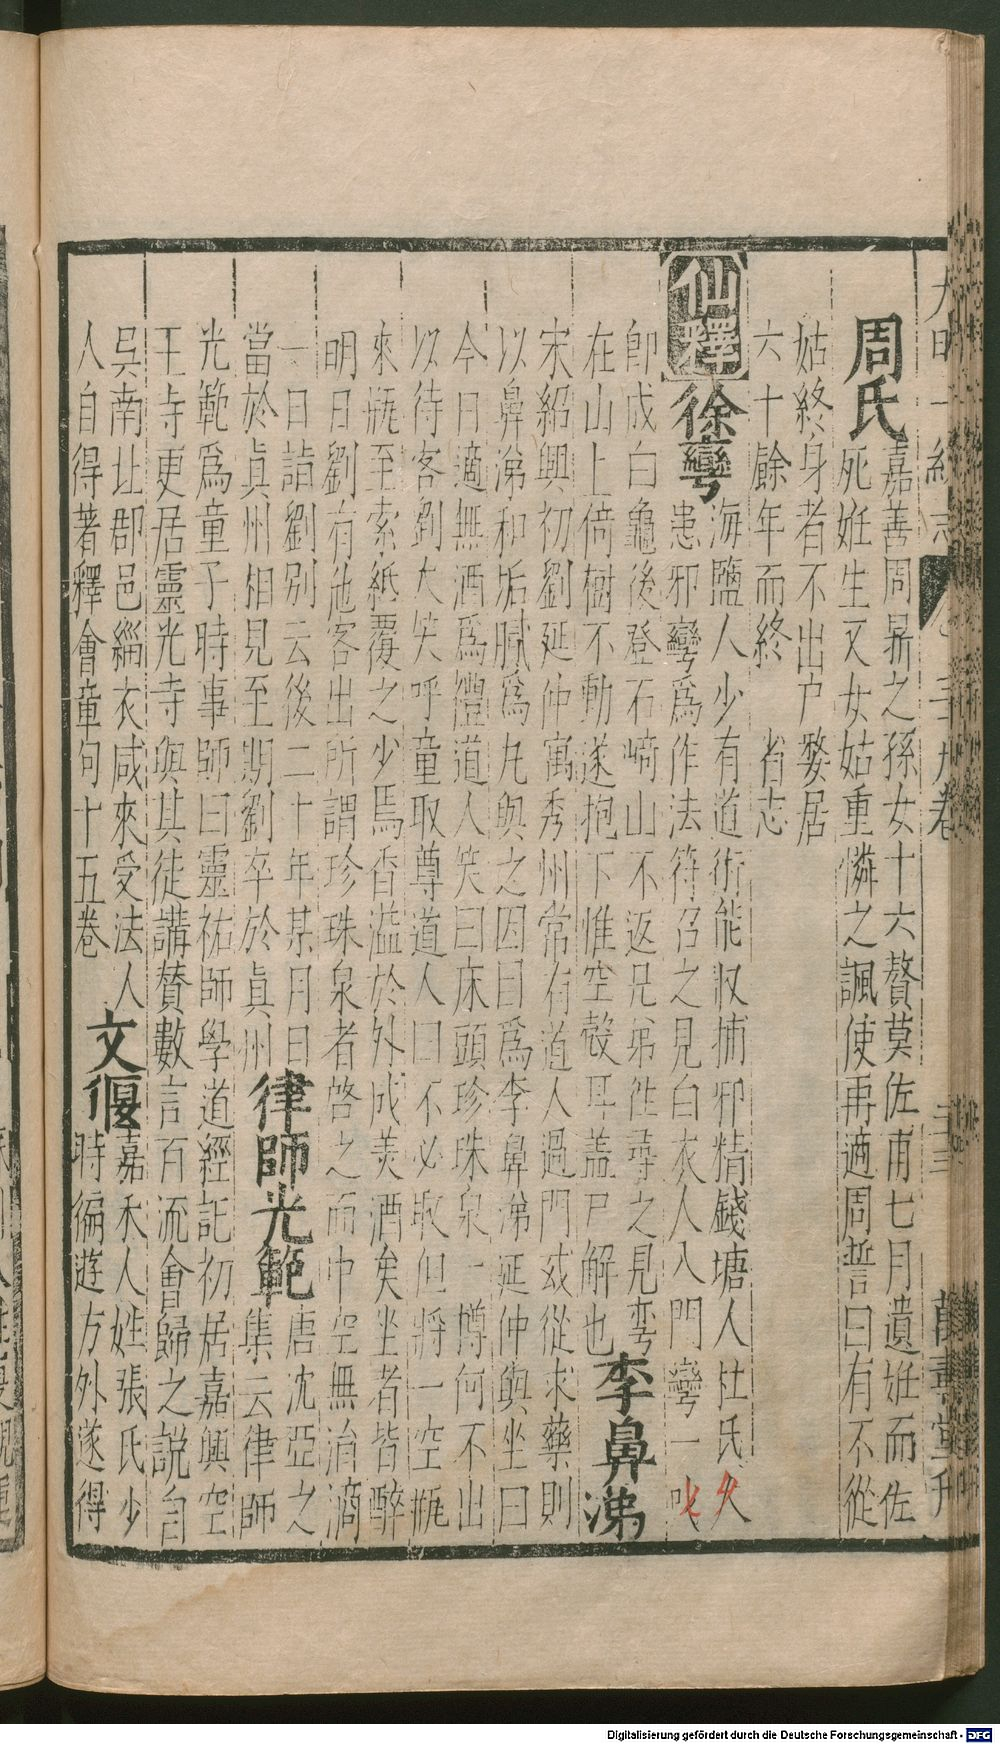 周氏嘉善周昪之孫女十六贅莫佐甫七月遺妊而佐
死妊生又女姑重憐之諷使再適周誓曰有不從
姑終身者不出户嫠居
六十餘年而終 省志
仙釋 徐彎海鹽人少有道術能収捕邪精錢塘人杜氏久
患邪彎爲作法符召之見白衣人入門彎一
即成白龜後登石﨑山不返兄弟徃尋之見彎
在山上倚樹不動遂抱下惟空殻耳蓋尸解也 李鼻涕
宋紹興初劉延仲寓秀州常有道人過門或從求藥則
以鼻涕和垢膩爲丸與之因曰爲李鼻涕延仲與坐曰
今日適無酒爲禮道人笑曰床頭珍珠泉一樽何不出
以待客劉大笑呼童取尊道人曰不必取但將一空瓶
來瓶至索紙覆之少焉香溢於外成美酒矣坐者皆醉
明日劉有他客出所謂珍珠泉者啓之而中空無治滴
一日詣劉别云後二十年某月日
當於眞州相見至期劉卒於眞州 律師光範唐沈亞之
集云律師
光範爲童子時事師曰靈祐師學道經記初居嘉興空
王寺更居靈光寺與其徒講賛數言百流會歸之說自
吳南北郡邑緇衣咸來受法人 文偃嘉禾人姓張氏少
人自得著釋會章句十五卷 時徧遊方外遂得
三九卷
三三
Digitalisierung gefördert durch die Deutsche Forschungsgemeinschaft - DFG